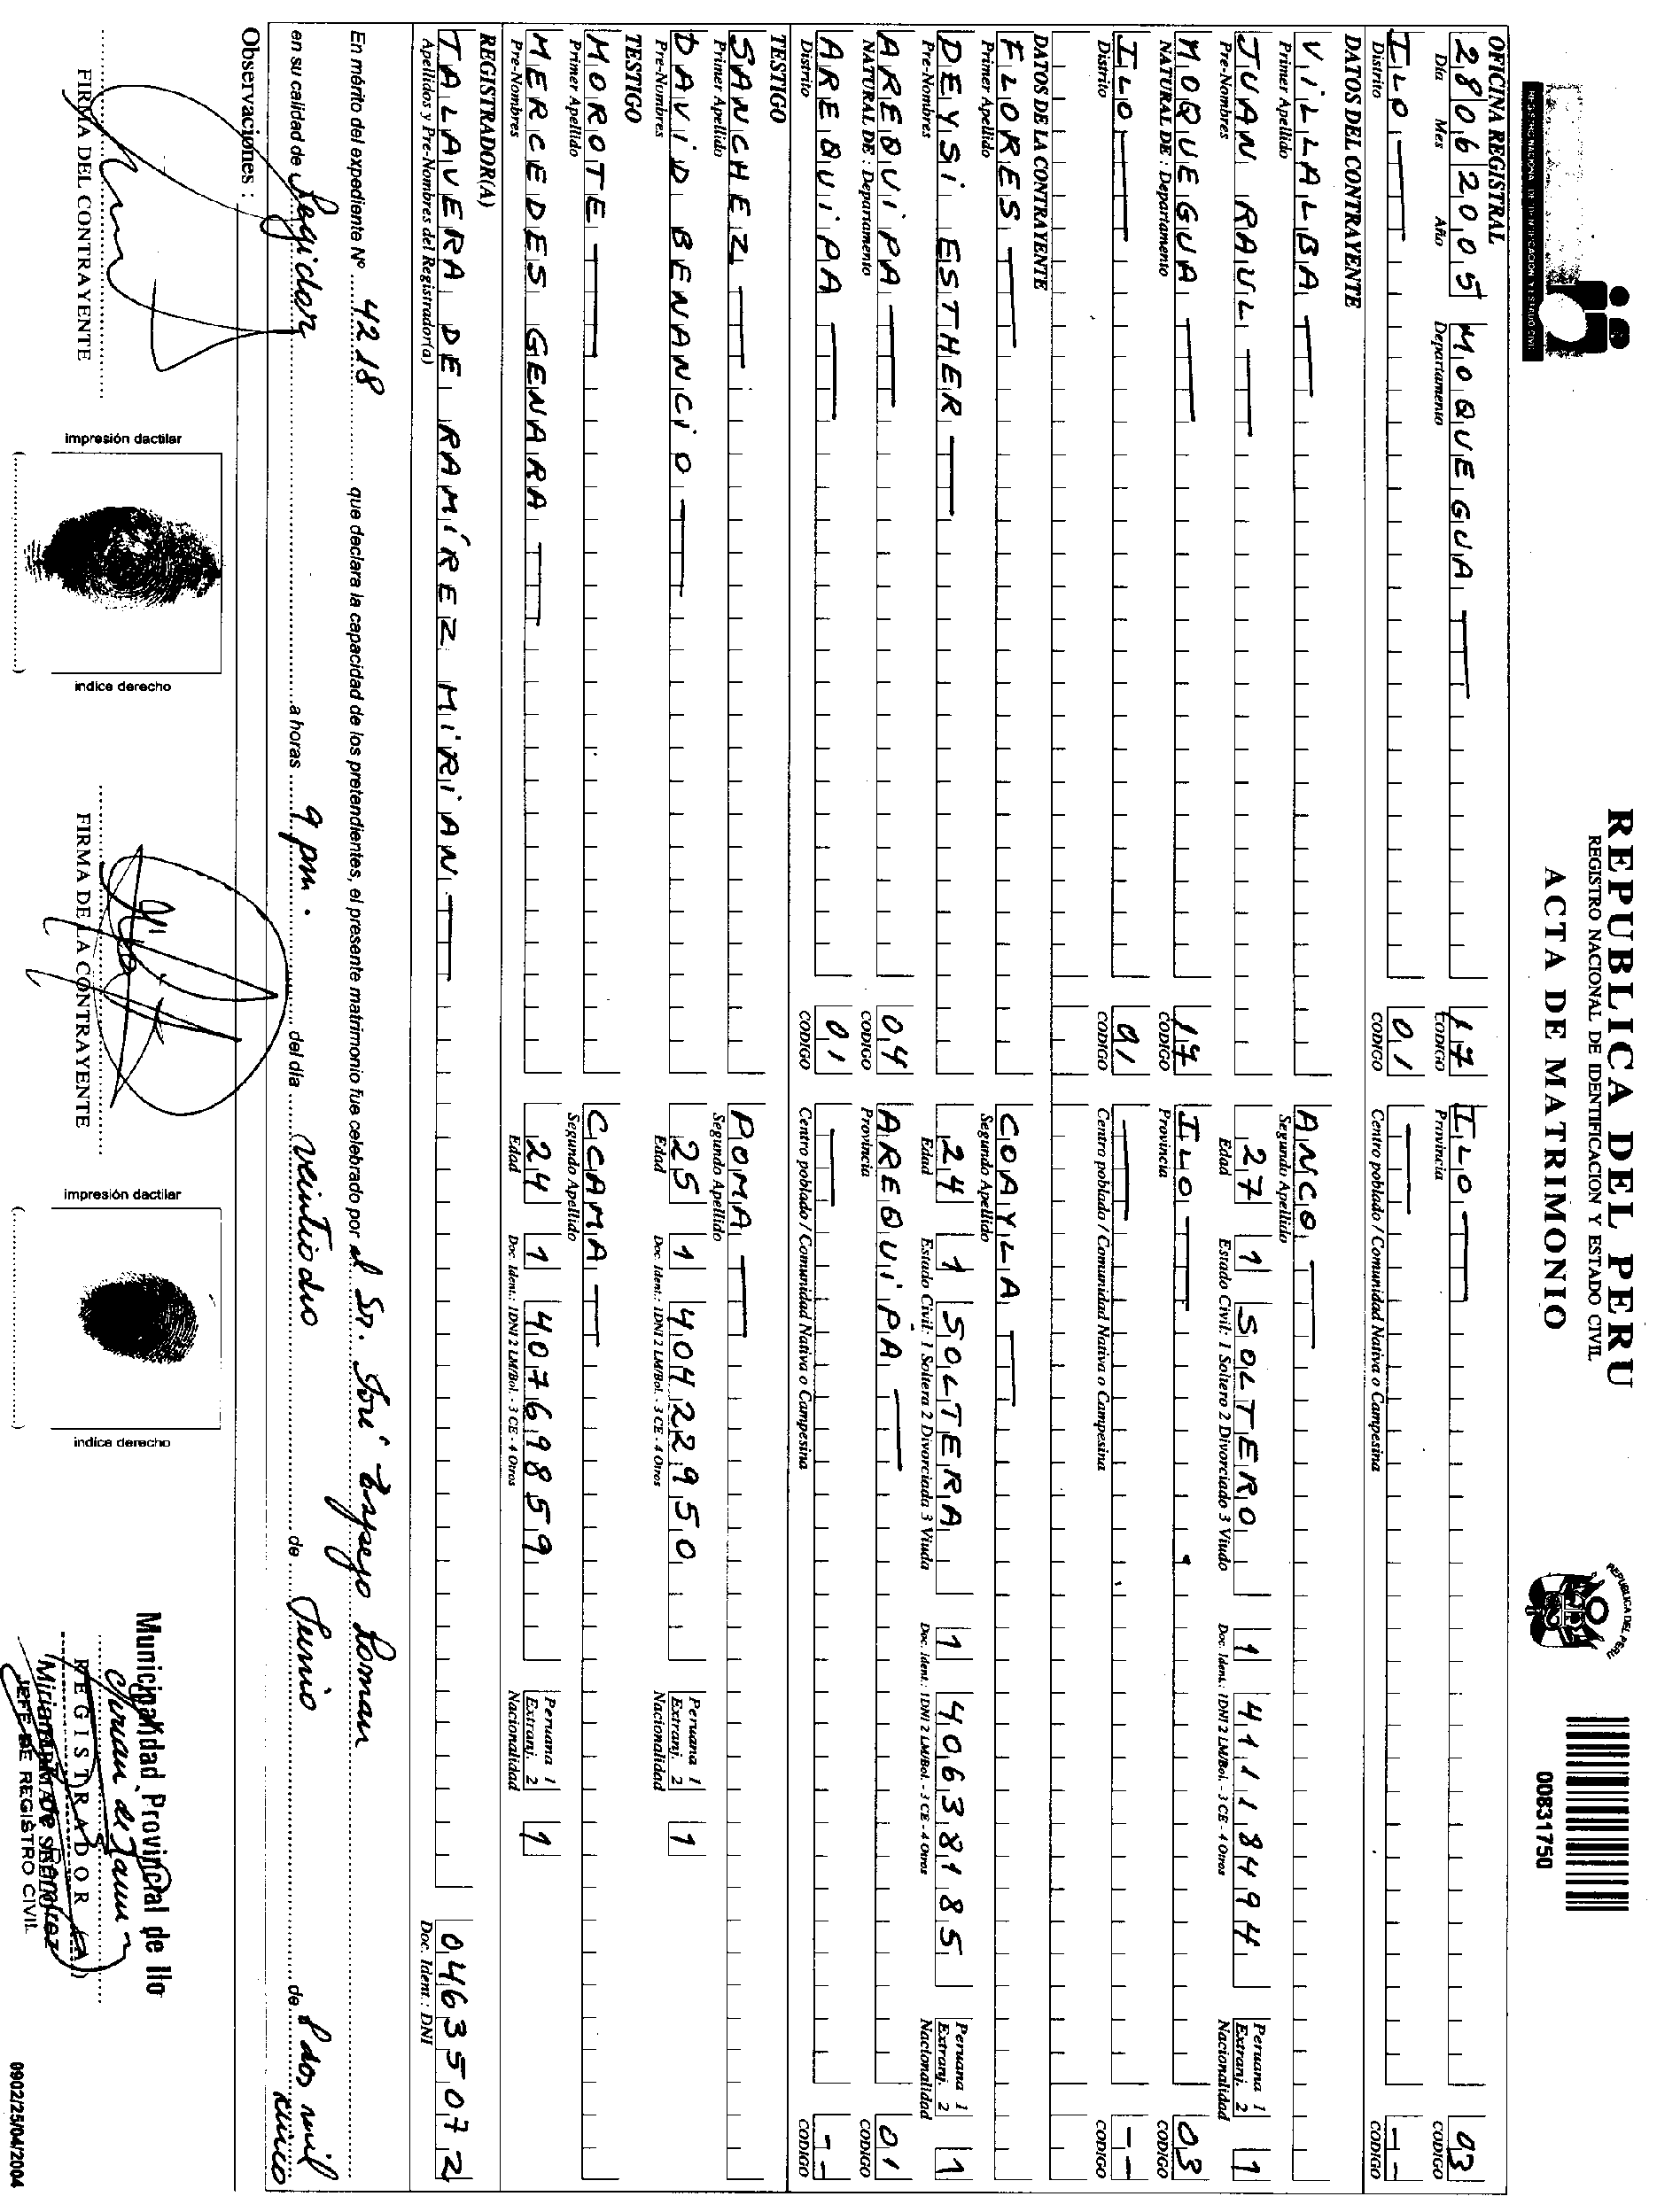 REPUBLICA DEL PERU
REGISTRO NACIONAL DE IDENTIFICACION Y ESTADO CIVIL
ACTA DE MATRIMONIO
REGISTRO NACIONAL DE IDENTIFICACION Y ESTADO CIVIL
REPUBLICA DEL PERU
00831750
OFICINA REGISTRAL
28 06 2005 MOQUEGUA 17 ILO 03
Día Mes Año Departamento CODIGO Provincia CODIGO
ILO 01 — --
Distrito CODIGO Centro poblado / Comunidad Nativa o Campesina CODIGO
DATOS DEL CONTRAYENTE
VILLALBA ANCO
Primer Apellido Segundo Apellido
JUAN RAUL 27 1 SOLTERO 1 41118494 Peruana 1 Extranj. 2 1
Pre-Nombres Edad Estado Civil: 1 Soltero 2 Divorciado 3 Viudo Doc. Ident.: 1DNI 2 LM/Bol. - 3 CE - 4 Otros Nacionalidad
MOQUEGUA 17 ILO 03
NATURAL DE : Departamento CODIGO Provincia CODIGO
ILO 01 — --
Distrito CODIGO Centro poblado / Comunidad Nativa o Campesina CODIGO
DATOS DE LA CONTRAYENTE
FLORES COAYLA
Primer Apellido Segundo Apellido
DEYSI ESTHER 24 1 SOLTERA 1 40638185 Peruana 1 Extranj. 2 1
Pre-Nombres Edad Estado Civil: 1 Soltera 2 Divorciada 3 Viuda Doc. Ident.: 1DNI 2 LM/Bol. - 3 CE - 4 Otros Nacionalidad
AREQUIPA 04 AREQUIPA 01
NATURAL DE : Departamento CODIGO Provincia CODIGO
AREQUIPA 01 — --
Distrito CODIGO Centro poblado / Comunidad Nativa o Campesina CODIGO
TESTIGO
SANCHEZ POMA
Primer Apellido Segundo Apellido
DAVID BENANCIO 25 1 40422950 Peruana 1 Extranj. 2 1
Pre-Nombres Edad Doc. Ident.: 1DNI 2 LM/Bol. - 3 CE - 4 Otros Nacionalidad
TESTIGO
MOROTE CCAMA
Primer Apellido Segundo Apellido
MERCEDES GENARA 24 1 40769859 Peruana 1 Extranj. 2 1
Pre-Nombres Edad Doc. Ident.: 1DNI 2 LM/Bol. - 3 CE - 4 Otros Nacionalidad
REGISTRADOR(A)
TALAVERA DE RAMÍREZ MIRIAN 04635072
Apellidos y Pre-Nombres del Registrador(a) Doc. Ident.: DNI
En mérito del expediente Nº 4218 que declara la capacidad de los pretendientes, el presente matrimonio fue celebrado por el Sr. José Espejo Roman
en su calidad de Regidor a horas 9 pm. del día veintiocho de Junio de dos mil cinco
Observaciones :
FIRMA DEL CONTRAYENTE
impresión dactilar
indice derecho
FIRMA DE LA CONTRAYENTE
impresión dactilar
indice derecho
Municipalidad Provincial de Ilo
REGISTRADOR
JEFE DE REGISTRO CIVIL
0902/25/04/2004